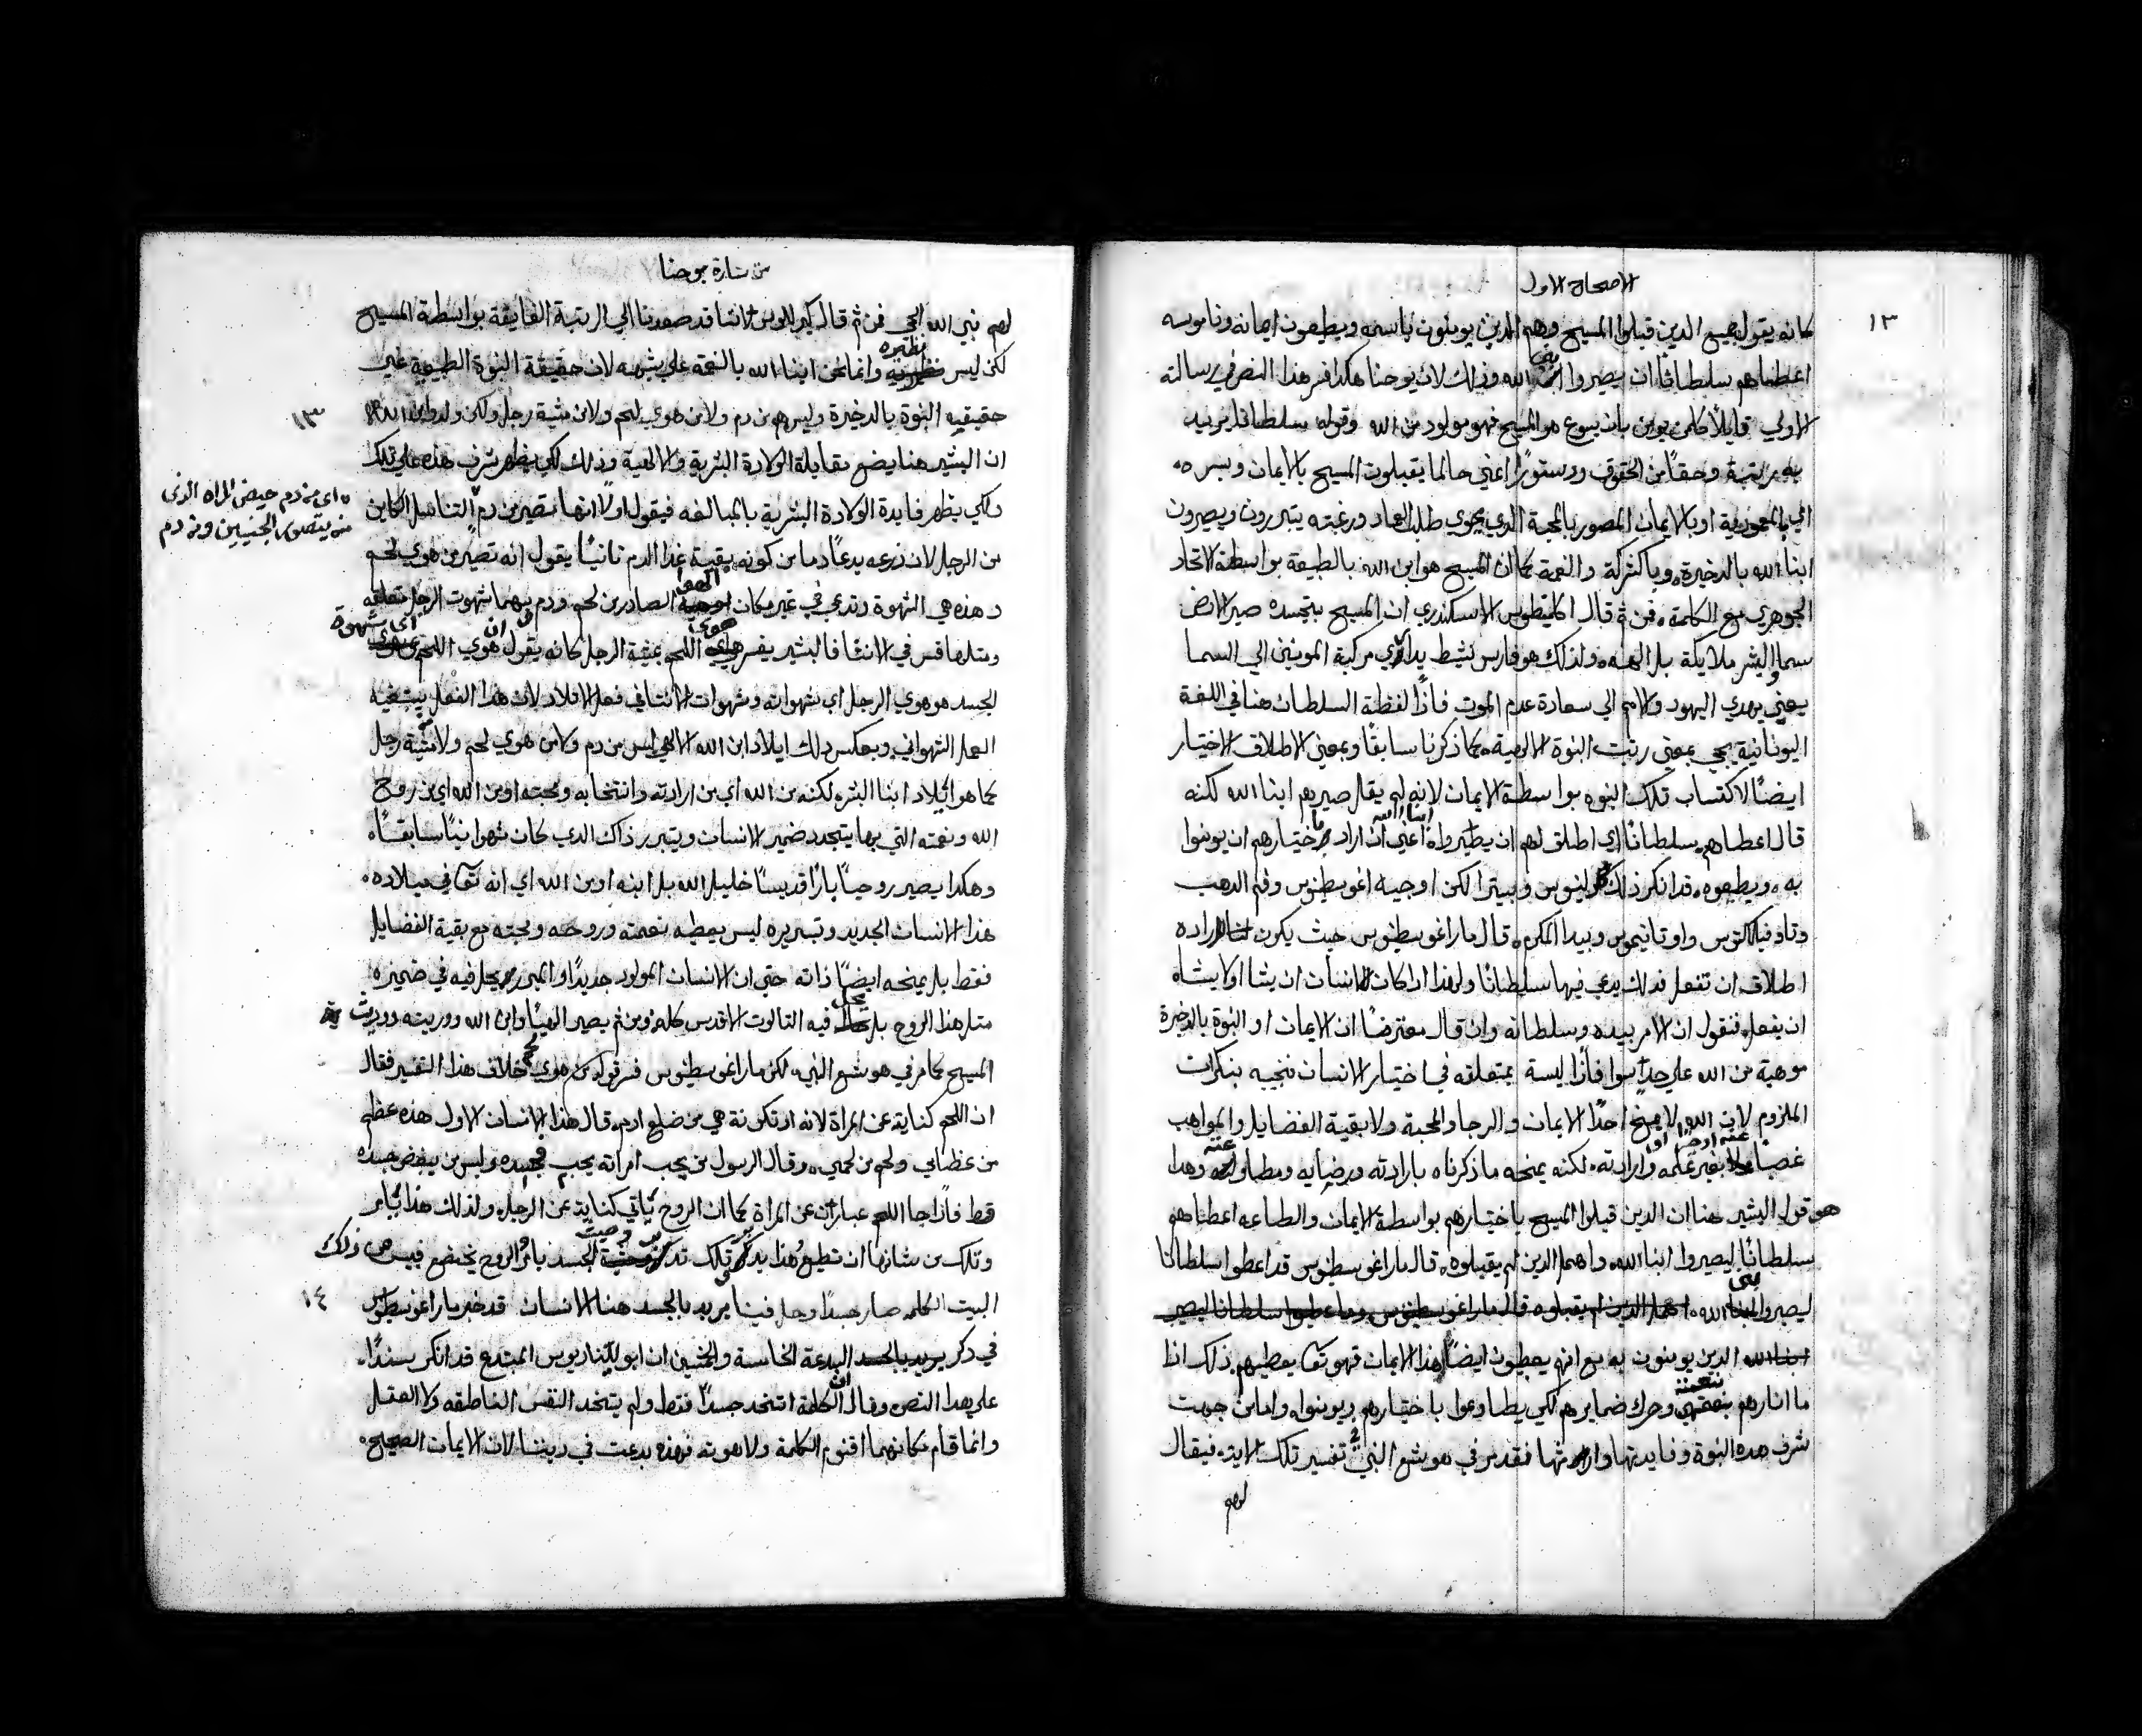 الاصحاح الاول
١٣
كانه يقول جميع الدين قبلوا المسيح وهم الدين يومنون باسمه ويطيعون ايمانه وناموسه
اعطاهم سلطاناً ان يصيروا بني الله وذلك لان يوحنا هكذا فسر هذا النص في رسالته
الاولي قايلاً كلمن يومن بان يسوع هو المسيح فهو مولود من الله وقوله سلطانا يريد
به رتبة وحقاً من الحقوق ودستوراً اعني حالما يقبلون المسيح بالايمان وبسره
اي بالمعمودية او بالايمان المصور بالمحبة الدي يحوي طلب العماد ورغبته يتبررون ويصيرون
ابنا الله بالدخيرة وبالشركة والنعمة كما ان المسيح هو ابن الله بالطبيعة بواسطة الاتحاد
الجوهري مع الكلمة فمن ثم قال اكليمنطوس الاسكندري ان المسيح بتجسده صير الارض
سما والبشر ملايكة بل الهه ولذلك هو فارس نشط يداري مركبة المومنين الي السما
يعني يهدي اليهود والامم الي سعادة عدم الموت فاذاً لفظة السلطان هنا في اللغة
اليونانية يجي بمعني رتبت البنوة الالهية كما ذكرنا سابقاً وبمعني الاطلاق الاختيار
ايضاً لاكتساب تلك البنوه بواسطة الايمان لانه لم يقل صيرهم ابنا الله لكنه
قال اعطاهم سلطاناً اي اطلق لهم ان يصيروا ابنا الله اعني ان اراد باختيارهم ان يومنوا
به ويطيعوه قد انكر ذلك كلوينوس وبيترا لكن اوجبه اغوسطينوس وفم الدهب
وتاوفيلكتوس واوتانيموس وبيدا المكرم قال مار اغوسطينوس حيث يكون الارادة
اطلاق ان تفعل فدلك يدعي فيها سلطاناً ولهذا ان كان للانسان ان يشا او لا يشاء
ان يفعل فنقول ان الامر بيده وسلطانه وان قال معترضاً ان الايمان او البنوة بالدخيرة
موهبة من الله علي حدٍ سوا فاذاً ليسة بمتعلقه في اختيار الانسان فنجيبه بنكران
الملزوم لان الله لا يمنح احداً الايمان والرجا والمحبة ولا بقية الفضايل والمواهب
غصباً عنه او بغير علمه وارادته لكنه يمنحه ما ذكرناه بارادته ورضايه ومطاوعته وهدا
هو قول البشير هنا ان الدين قبلوا المسيح باختيارهم بواسطة الايمان والطاعه اعطاهم
سلطاناً ليصيروا ابنا الله واهمل الدين لم يقبلوه قال مار اغوسطينوس قد اعطوا سلطانا
ليصيروا بني الله اهمل الدين لم يقبلوه قال مار اغوسطينوس وما اعطيوا سلطانا ليصير
ابنا الله الدين يومنون به مع انهم يعطون ايضاً هذا الايمان فهو تعا يعطيهم ذلك اذا
ما انارهم بنعمته وحرك ضمايرهم لكي يطاوعوا باختيارهم ويومنوا واما من جهت
شرف هده البنوة وفايدتها وارثها فقد مر في هوشع النبي تفسير تلك الاية فيقال
لهم
من بشارة يوحنا
لهم بني الله الحي فمن ثم قال كيرللوس لاننا قد صعدنا الي الرتبة الفايقة بواسطة المسيح
لكن ليس نظيره وانما نحن ابنا الله بالنعمة علي شبهه لان حقيقة البنوة الطبيعية غير
حقيقيه البنوة بالدخيرة وليس هم من دم ولا من هوي لحم ولا من مشية رجل ولكن ولدوا من الله
١٣
ان البشير هنا يضع مقابلة الولادة البشرية والالهية وذلك لكي يظهر شرف هذه علي تلك
ولكي يظهر فايدة الولادة البشرية بالمبالغه فيقول اولاً انها تصير من دم التناسل الكاين
اي من دم حيض المراه الذي
منه يتصور الجنين ومن دم
من الرجل لان زرعه يدعا دما من كونه بقية غدا الدم ثانياً يقول انه تصير من هوي لحم
وهذه هي الشهوة وتدعي في غير مكان الهوا الصادر من لحم ودم بهما شهوت الرجل متعلقه
ومتلها قس في الانثا فالبشير يفسر هوي اللحم بمشية الرجل كانه يقول ان هوي اللحم اي شهوة
الجسد هو هوي الرجل اي شهواته وشهوات الانثا في فعل الايلاد لان هذا الفعل ينتهيه
العمل الشهواني وبعكس دلك ايلاد ابن الله الالهي ليس من دم ولا من هوي لحم ولا مشية رجل
كما هو ايلاد ابنا البشر لكنه من الله اي من ارادته وانتخابه ومحبته او من الله اي من روح
الله ونعمته التي بها يتجدد ضمير الانسان ويتبرر ذاك الدي كان شهوانياً سابقاً
وهكدا يصير روحياً باراً قديساً خليل الله بل ابنه او من الله اي انه تعا في ميلاده
هذا الانسان الجديد وتبريره ليس يعطيه نعمته وروحه ومحبته مع بقية الفضايل
فقط بل يمنحه ايضاً ذاته حتي ان الانسان المولود جديداً والمبرر يحل فيه في ضميره
متل هذا الروح بل يحل فيه التالوت الاقدس كله ومن ثم يصير الهياً وابن الله ووريته ووريت
المسيح كما مر في هوشع النبي لكن مار اغوسطينوس فسر قوله من هوي لحم خلاف هذا التفسير فقال
ان اللحم كناية عن المراة لانه اد تكونة هي من ضلع ادم قال هذا الانسان الاول هذه عظم
من عظامي ولحم من لحمي وقال الرسول من يحب امراته يحب جسده وليس من يبغض جسده
قط فاذاً جا اللحم عبارة عن المراة كما ان الروح ياتي كناية عن الرجل ولذلك هذا يامر
وتلك من شانها ان تطيع هذا يدبر وتلك تدبر وحيث الجسد يامر والروح يخضع فبيس من ذلك
البيت الكلمه صار جسداً وحل فينا يريد بالجسد هنا الانسان قد خبر مار اغوسطينوس
١٤
في ذكر البدعة الخامسة والخمسين ان ابوليناريوس المبتدع قد انكر مستنداً
علي هدا النص وقال ان الكلمة اتخد جسداً فقط ولم يتخد النفس الناطقه ولا العقل
وانما قام مكانهما اقنوم الكلمة ولاهوته فهذه بدعت في ديننا لان الايمان الصحيح